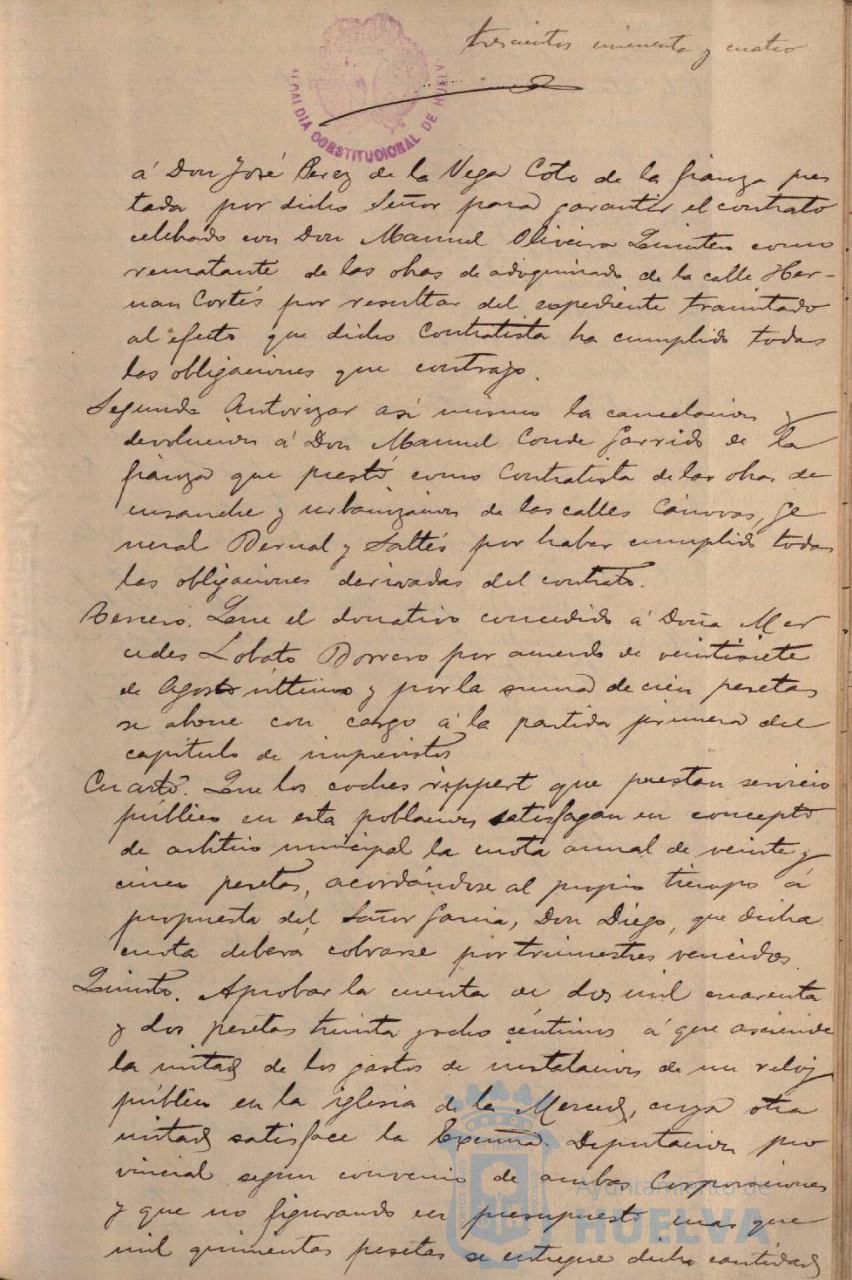 trescientos cincuenta y cuatro
ALCALDIA CONSTITUCIONAL DE HUELVA
á Don José Perez de la Vega Coto de la fianza pres
tada por dicho Señor para garantir el contrato
celebrado con Don Manuel Oliveira Quintero como
rematante de las obras de adoquinado de la calle Her-
nan Cortés por resultar del expediente tramitado
al efecto que dicho contratista ha cumplido todas
las obligaciones que contrajo.
Segundo Autorizar asi mismo la cancelacion y
devolucion á Don Manuel Conde Garrido de la
fianza que prestó como contratista de las obras de
ensanche y urbanizacion de las calles Cánovas, Ge
neral Bernal y Saltés por haber cumplido todas
las obligaciones derivadas del contrato.
Tercero. Que el donativo concedido á Doña Mer
cedes Lobato Borrero por acuerdo de veintisiete
de Agosto último y por la suma de cien pesetas
se abone con cargo á la partida primera del
capitulo de imprevistos
Cuarto. Que los coches rippert que prestan servicio
público en esta poblacion satisfagan en concepto
de arbitrio municipal la cuota anual de veinte y
cinco pesetas, acordándose al propio tiempo á
propuesta del Señor Garcia, Don Diego, que dicha
cuota deberá cobrarse por trimestres vencidos.
Quinto. Aprobar la cuenta de dos mil cuarenta
y dos pesetas treinta y ocho céntimos á que asciende
la mitad de los gastos de instalacion de un reloj
público en la iglesia de la Merced, cuya otra
mitad satisface la Excma. Diputacion pro
vincial segun convenio de ambas Corporaciones
y que no figurando en presupuesto mas que
mil quinientas pesetas se entregue dicha cantidad
Ayuntamiento de
HUELVA